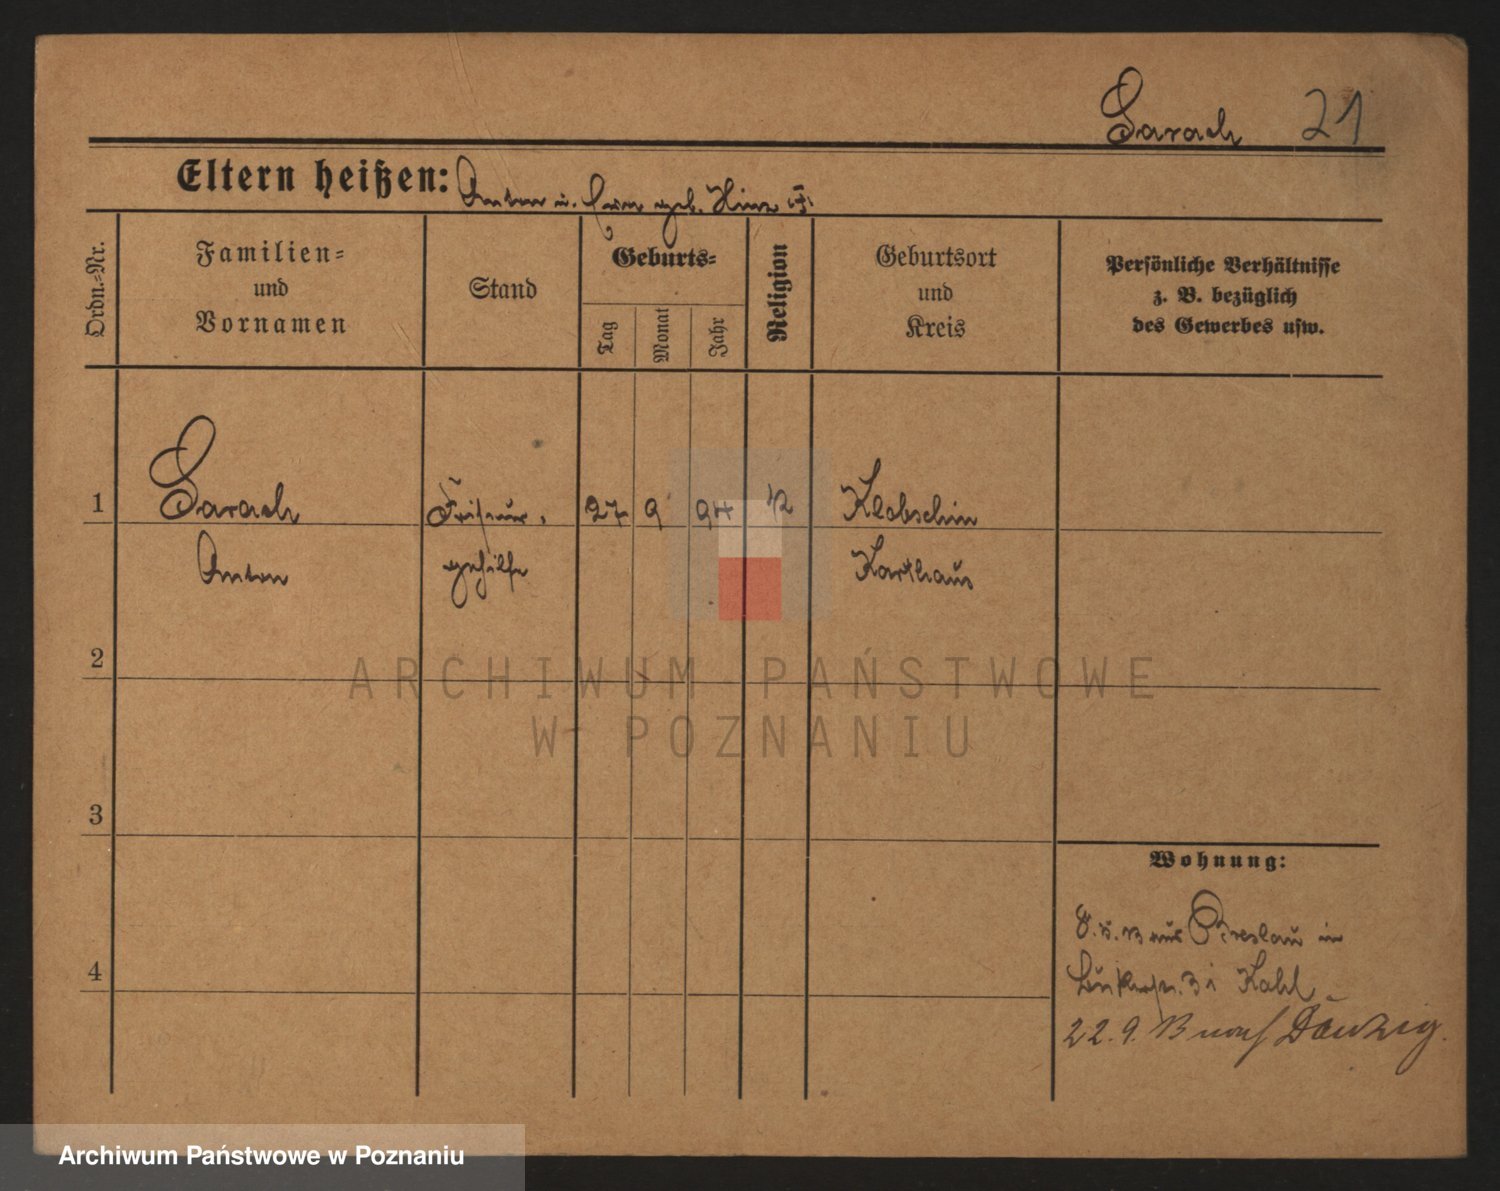 Sarach 21
Eltern heißen: Anton u. geb. Hinz
Ordn.-Nr.
Familien-
und
Vornamen
Stand
Geburts-
Tag
Monat
Jahr
Religion
Geburtsort
und
Kreis
Persönliche Verhältnisse
z. B. bezüglich
des Gewerbes usw.
1 Sarach Friseur- 27 9 94 K Klobschin
Anton gehilfe Karthaus
2
3
4
Wohnung:
aus Breslau in
3 Kahl
22.9. 13 nach Danzig.
ARCHIWUM PAŃSTWOWE
W POZNANIU
Archiwum Państwowe w Poznaniu